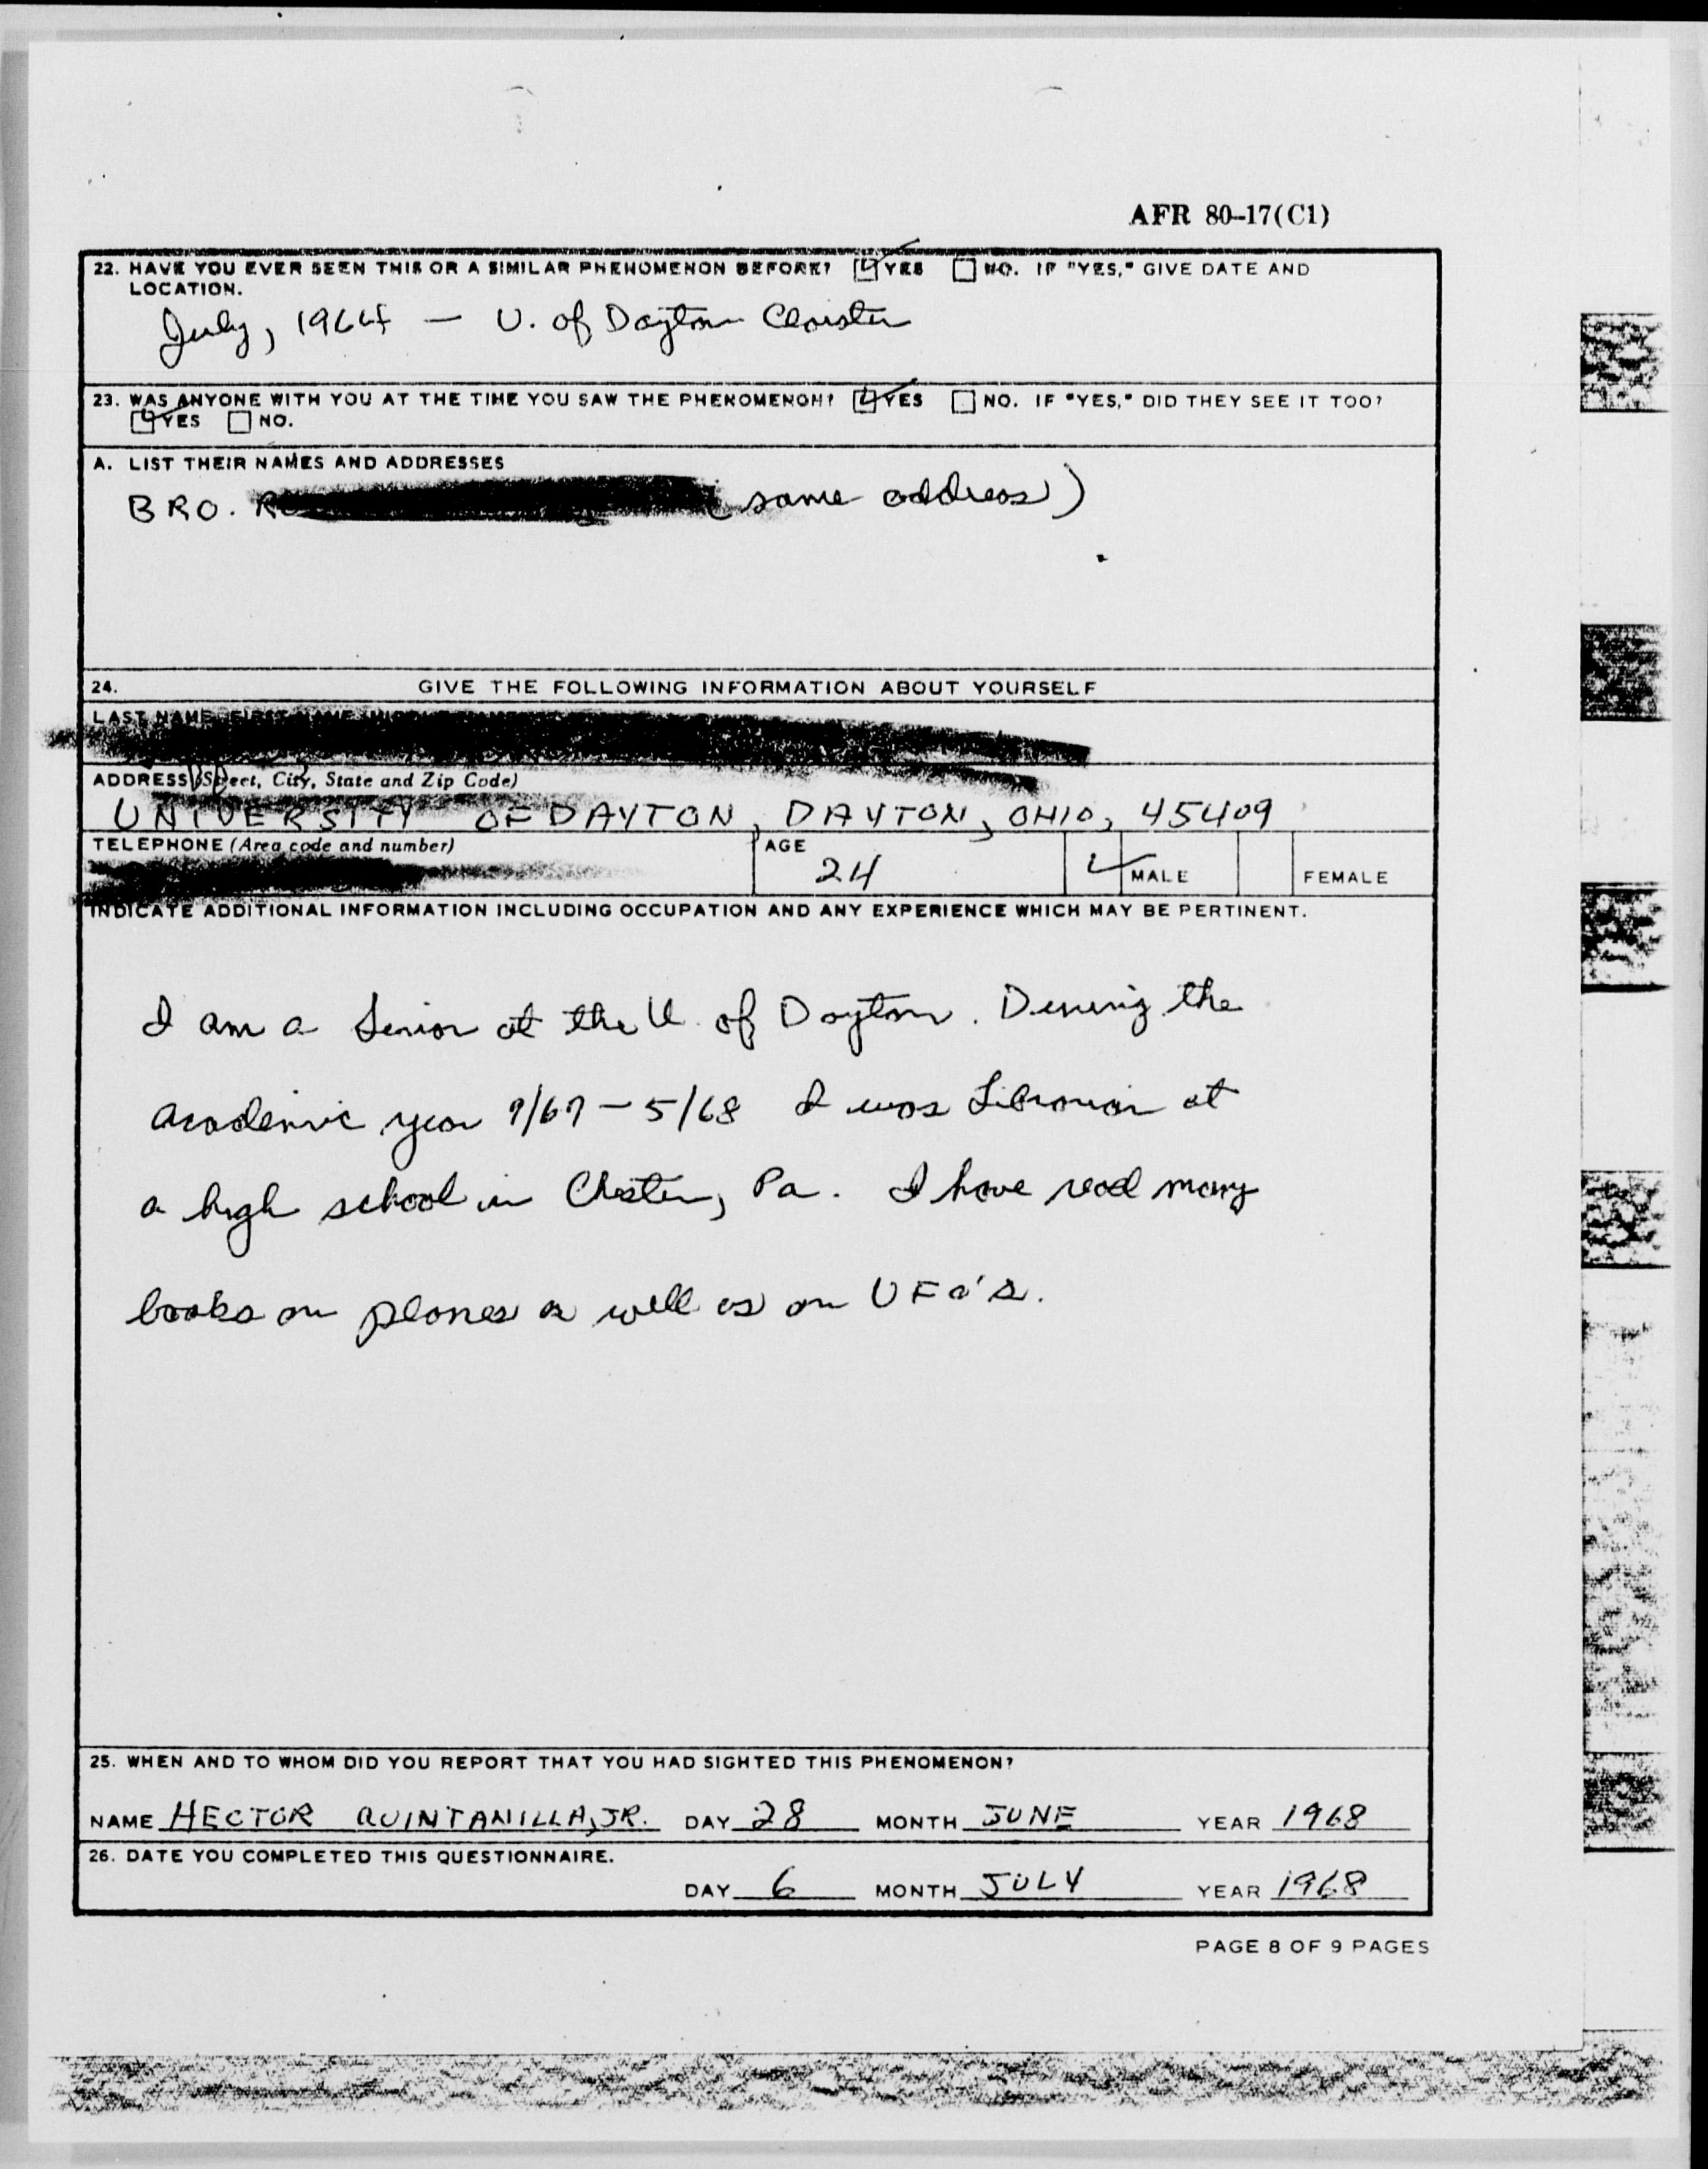 AFR 80-17(C1)
22. HAVE YOU EVER SEEN THIS OR A SIMILAR PHENOMENON BEFORE? YES NO. IF "YES," GIVE DATE AND
LOCATION.
July, 1964 — U. of Dayton Cloister
23. WAS ANYONE WITH YOU AT THE TIME YOU SAW THE PHENOMENON? YES NO. IF "YES," DID THEY SEE IT TOO?
YES NO.
A. LIST THEIR NAMES AND ADDRESSES
BRO. (same address)
24. GIVE THE FOLLOWING INFORMATION ABOUT YOURSELF
LAST NAME, FIRST NAME,
ADDRESS (Street, City, State and Zip Code)
UNIVERSITY OF DAYTON, DAYTON, OHIO, 45409
TELEPHONE (Area code and number) AGE 24 MALE FEMALE
INDICATE ADDITIONAL INFORMATION INCLUDING OCCUPATION AND ANY EXPERIENCE WHICH MAY BE PERTINENT.
I am a Senior at the U. of Dayton. During the
academic year 9/67 - 5/68 I was Librarian at
a high school in Chester, Pa. I have read many
books on planes as well as on UFO's.
25. WHEN AND TO WHOM DID YOU REPORT THAT YOU HAD SIGHTED THIS PHENOMENON?
NAME HECTOR QUINTANILLA, JR. DAY 28 MONTH JUNE YEAR 1968
26. DATE YOU COMPLETED THIS QUESTIONNAIRE.
DAY 6 MONTH JULY YEAR 1968
PAGE 8 OF 9 PAGES